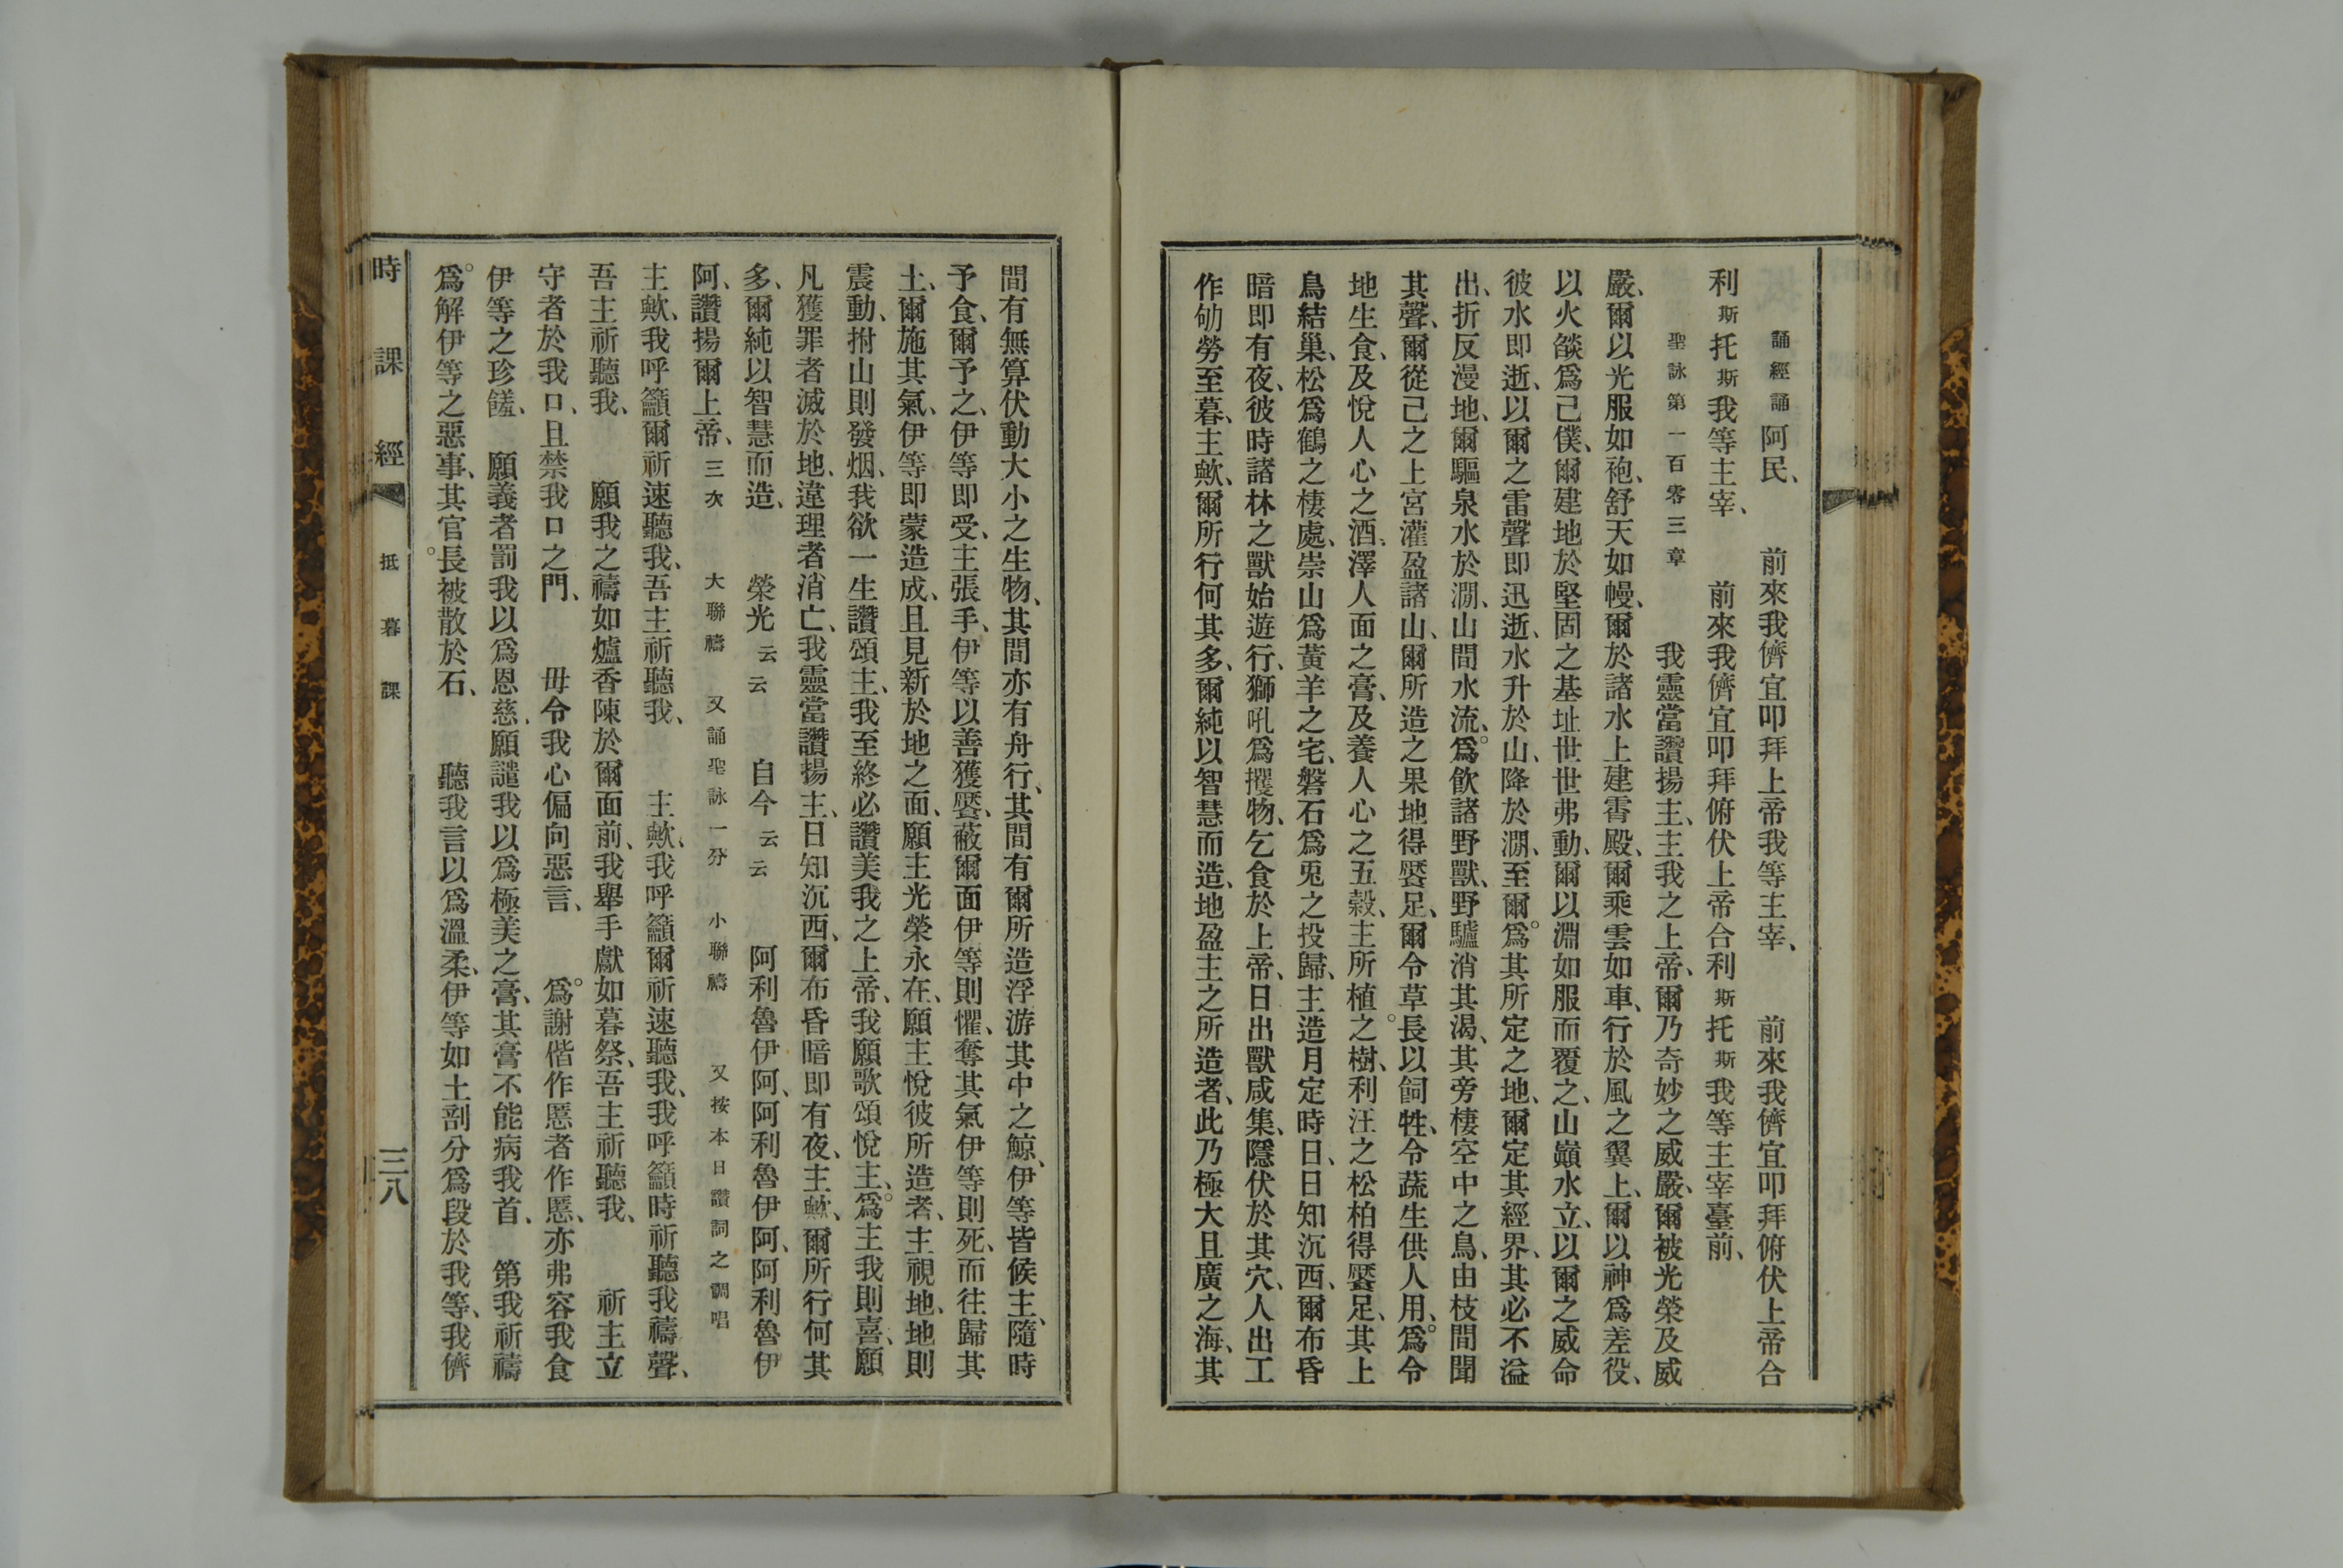 誦經誦阿民、 前來我儕宜叩拜上帝我等主宰、 前來我儕宜叩拜俯伏上帝合
利斯托斯我等主宰、 前來我儕宜叩拜俯伏上帝合利斯托斯我等主宰臺前、
聖詠第一百零三章 我靈當讚揚主、主我之上帝、爾乃奇妙之威嚴、爾被光榮及威
嚴、爾以光服如袍、舒天如幔、爾於諸水上建霄殿、爾乘雲如車、行於風之翼上、爾以神爲差役、
以火燄爲己僕、爾建地於堅固之基址世世弗動、爾以淵如服而覆之、山巔水立、以爾之威命
彼水即逝、以爾之雷聲即迅逝、水升於山、降於澗、至爾。爲其所定之地、爾定其經界、其必不溢
出、折反漫地、爾驅泉水於澗、山間水流、爲。飲諸野獸、野驢消其渴、其旁棲空中之鳥、由枝間聞
其聲、爾從己之上宮灌盈諸山、爾所造之果地得饜足、爾令草長。以飼牲、令蔬生供人用、爲。令
地生食、及悅人心之酒、澤人面之膏、及養人心之五穀、主所植之樹、利汪之松柏得饜足、其上
鳥結巢、松爲鶴之棲處、崇山爲黃羊之宅、磐石爲兎之投歸、主造月定時日、日知沉西、爾布昏
暗即有夜、彼時諸林之獸始遊行、獅吼爲攫物、乞食於上帝、日出獸咸集、隱伏於其穴、人出工
作劬勞至暮、主歟、爾所行何其多、爾純以智慧而造、地盈主之所造者、此乃極大且廣之海、其
間有無算伏動大小之生物、其間亦有舟行、其間有爾所造浮游其中之鯨、伊等皆候主、隨時
予食、爾予之、伊等即受、主張手、伊等以善獲饜、蔽爾面伊等則懼、奪其氣伊等則死、而往歸其
土、爾施其氣、伊等即蒙造成、且見新於地之面、願主光榮永在、願主悅彼所造者、主視地、地則
震動、拊山則發烟、我欲一生讚頌主、我至終必讚美我之上帝、我願歌頌悅主、爲。主我則喜、願
凡獲罪者滅於地、違理者消亡、我靈當讚揚主、日知沉西、爾布昏暗即有夜、主歟、爾所行何其
多、爾純以智慧而造、 榮光云云 自今云云 阿利魯伊阿、阿利魯伊阿、阿利魯伊
阿、讚揚爾上帝、三次 大聯禱 又誦聖詠一分 小聯禱 又按本日讚詞之調唱
主歟、我呼籲爾祈速聽我、吾主祈聽我、 主歟、我呼籲爾祈速聽我、我呼籲時祈聽我禱聲、
吾主祈聽我、 願我之禱如爐香陳於爾面前、我舉手獻如暮祭、吾主祈聽我、 祈主立
守者於我口、且禁我口之門、 毋令我心偏向惡言、 爲。謝偕作慝者作慝、亦弗容我食
伊等之珍饈、 願義者罰我以爲恩慈、願譴我以爲極美之膏、其膏不能病我首、 第我祈禱
爲。解伊等之惡事、其官長。被散於石、 聽我言以爲溫柔、伊等如土剖分爲段於我等、我儕
時課經 抵暮課 三八